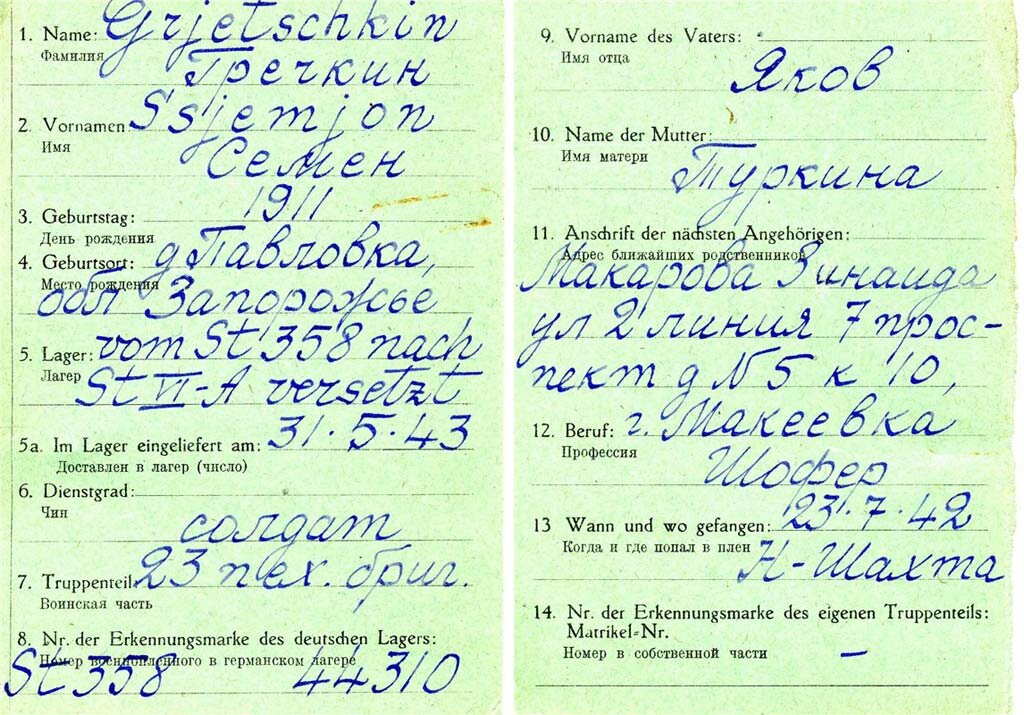 1. Name: Grjetschkin
Фамилия Гречкин
2. Vornamen S'sjemjon
Имя Семен
3. Geburtstag: 1911
День рождения
4. Geburtsort: д Павловка,
Место рождения обл Запорожье
5. Lager: vom St 358 nach
Лагер St VI-A versetzt
5a. Im Lager eingeliefert am: 31·5·43
Доставлен в лагер (число)
6. Dienstgrad:
Чин солдат
7. Truppenteil: 23 пех. бриг.
Воинская часть
8. Nr. der Erkennungsmarke des deutschen Lagers:
Номер военнопленного в германском лагере
St 358 44310
9. Vorname des Vaters:
Имя отца Яков
10. Name der Mutter:
Имя матери Туркина
11. Anschrift der nächsten Angehörigen:
Адрес ближайших родственников
Макарова Зинаида
ул 2 линия 7 прос-
пект д N5 к 10,
12. Beruf: г. Макеевка
Профессия Шофер
13 Wann und wo gefangen: 23·7·42
Когда и где попал в плен Н-Шахта
14. Nr. der Erkennungsmarke des eigenen Truppenteils:
Matrikel-Nr.
Номер в собственной части —